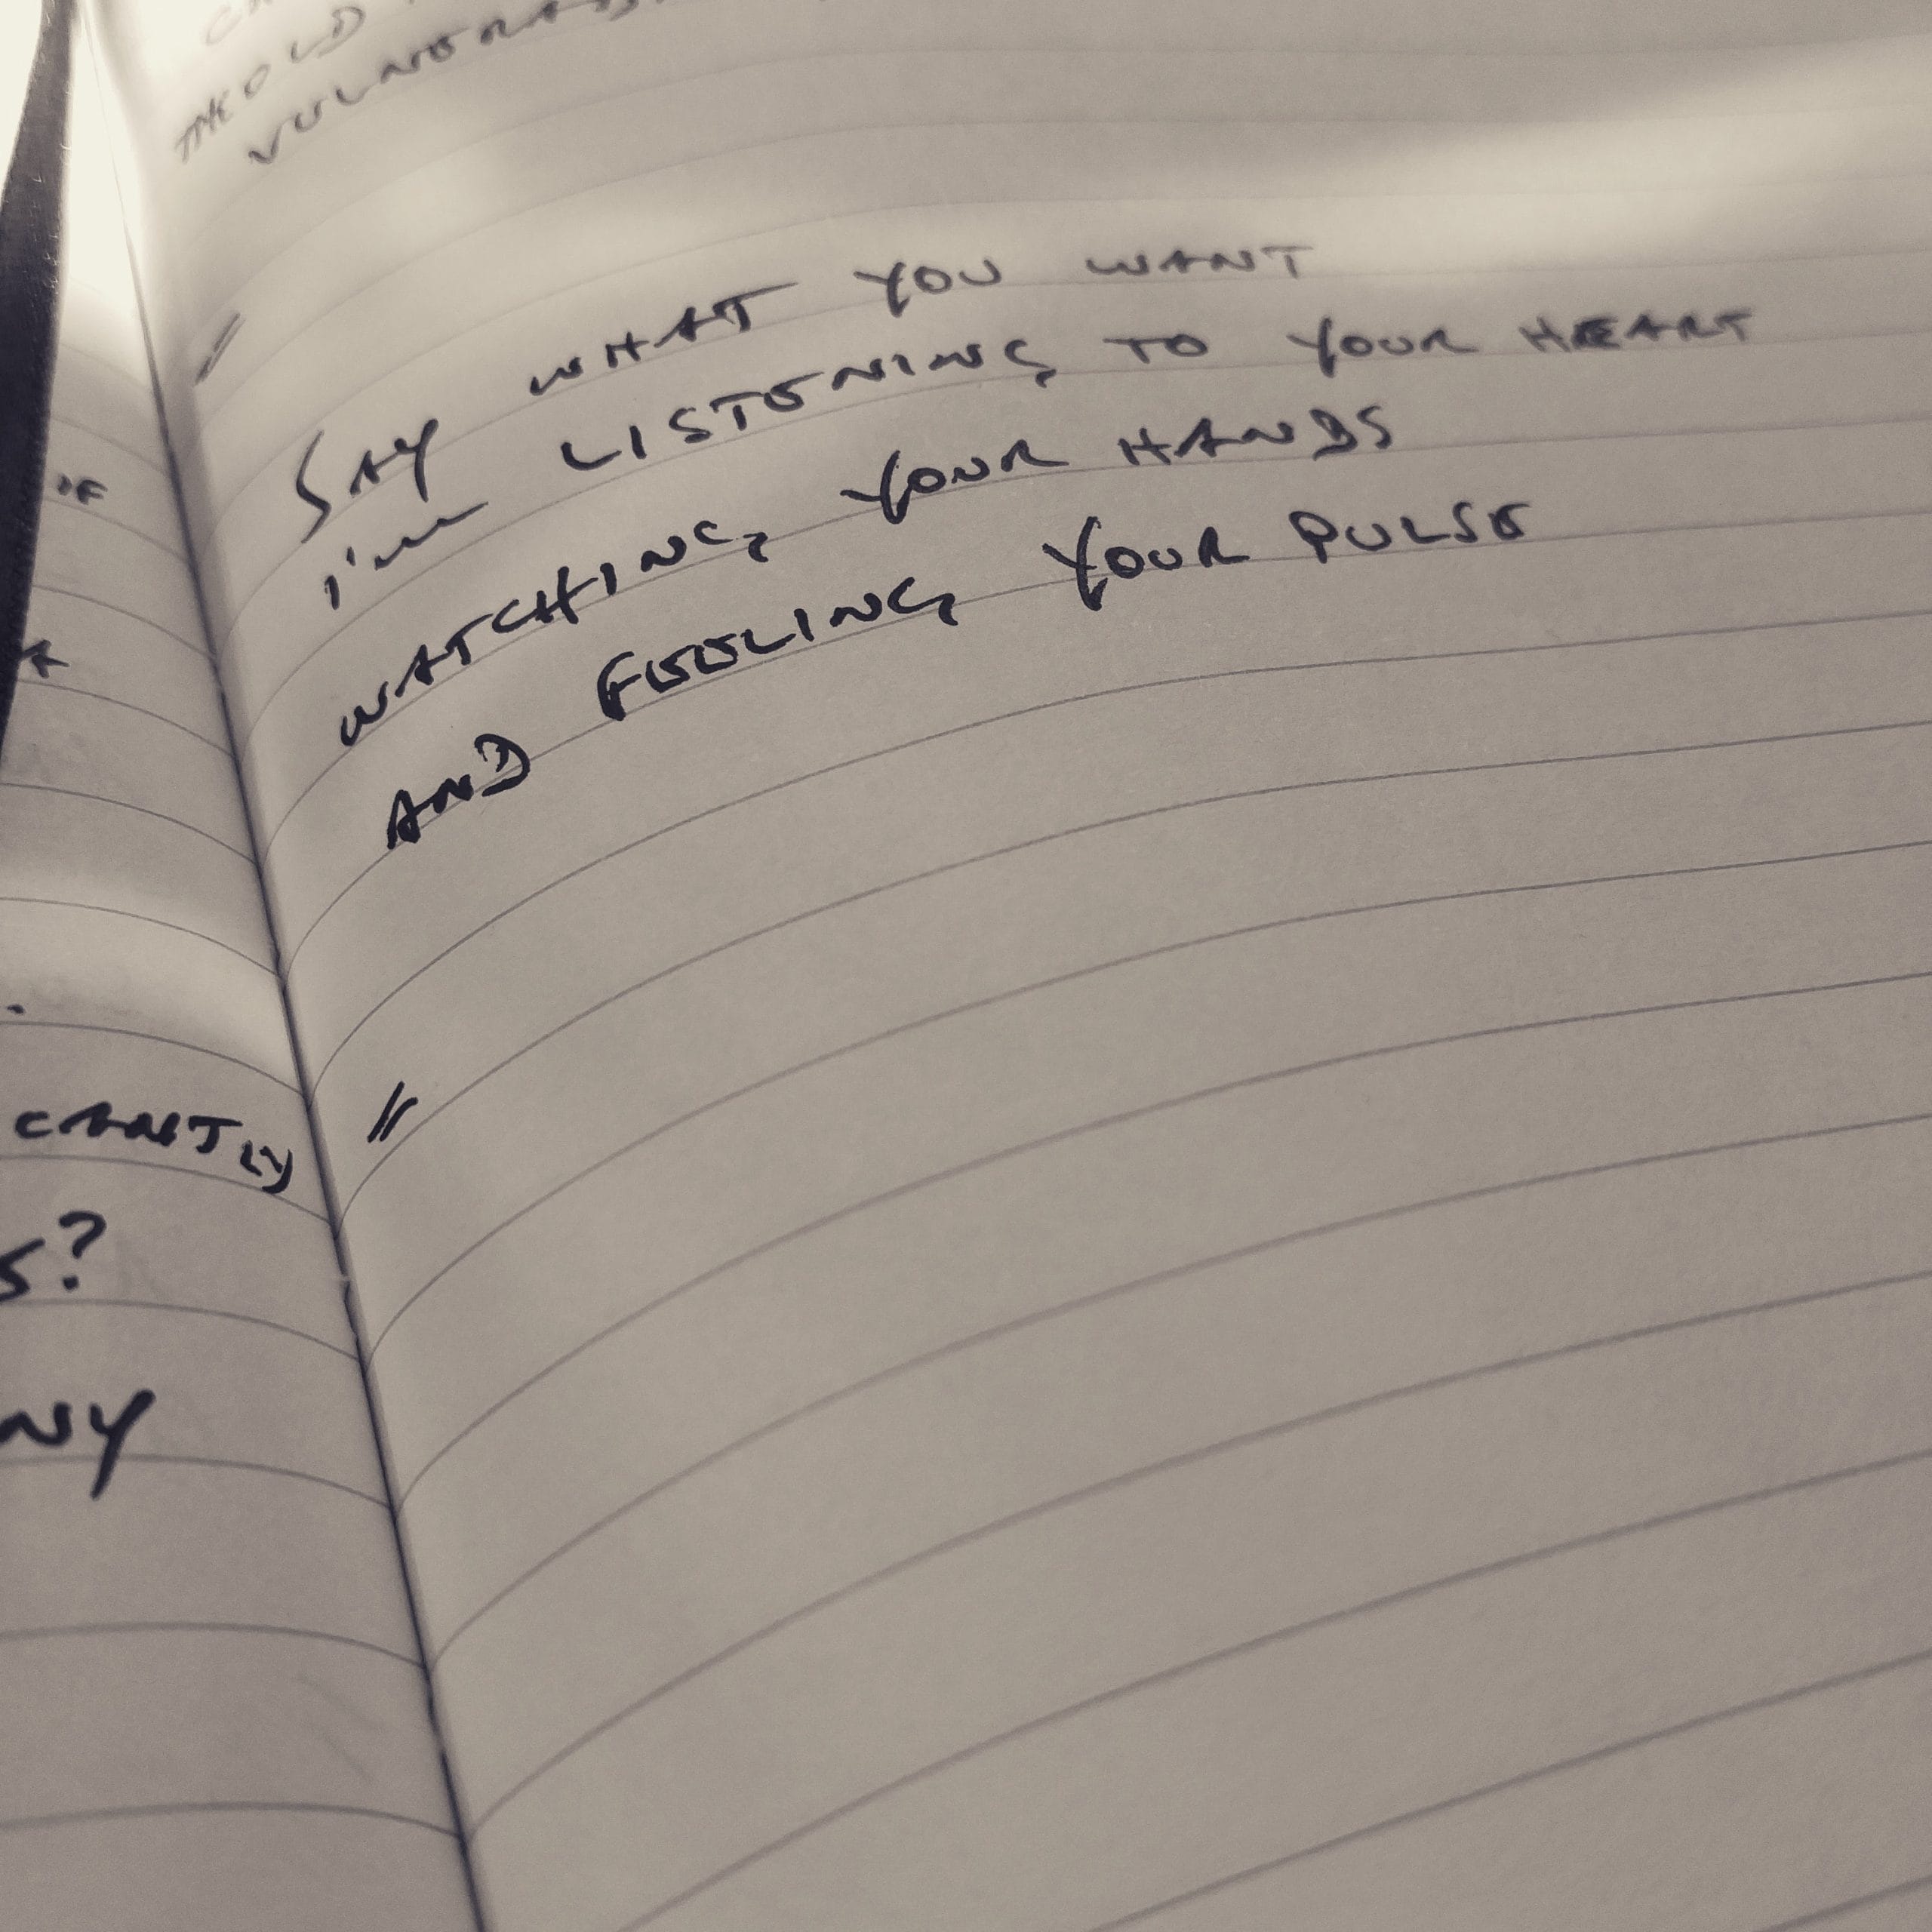 OF
CANTLY
S?
NY
THE OLD
SAY WHAT YOU WANT
I'm LISTENING TO YOUR HEART
WATCHING YOUR HANDS
AND FEELING YOUR PULSE